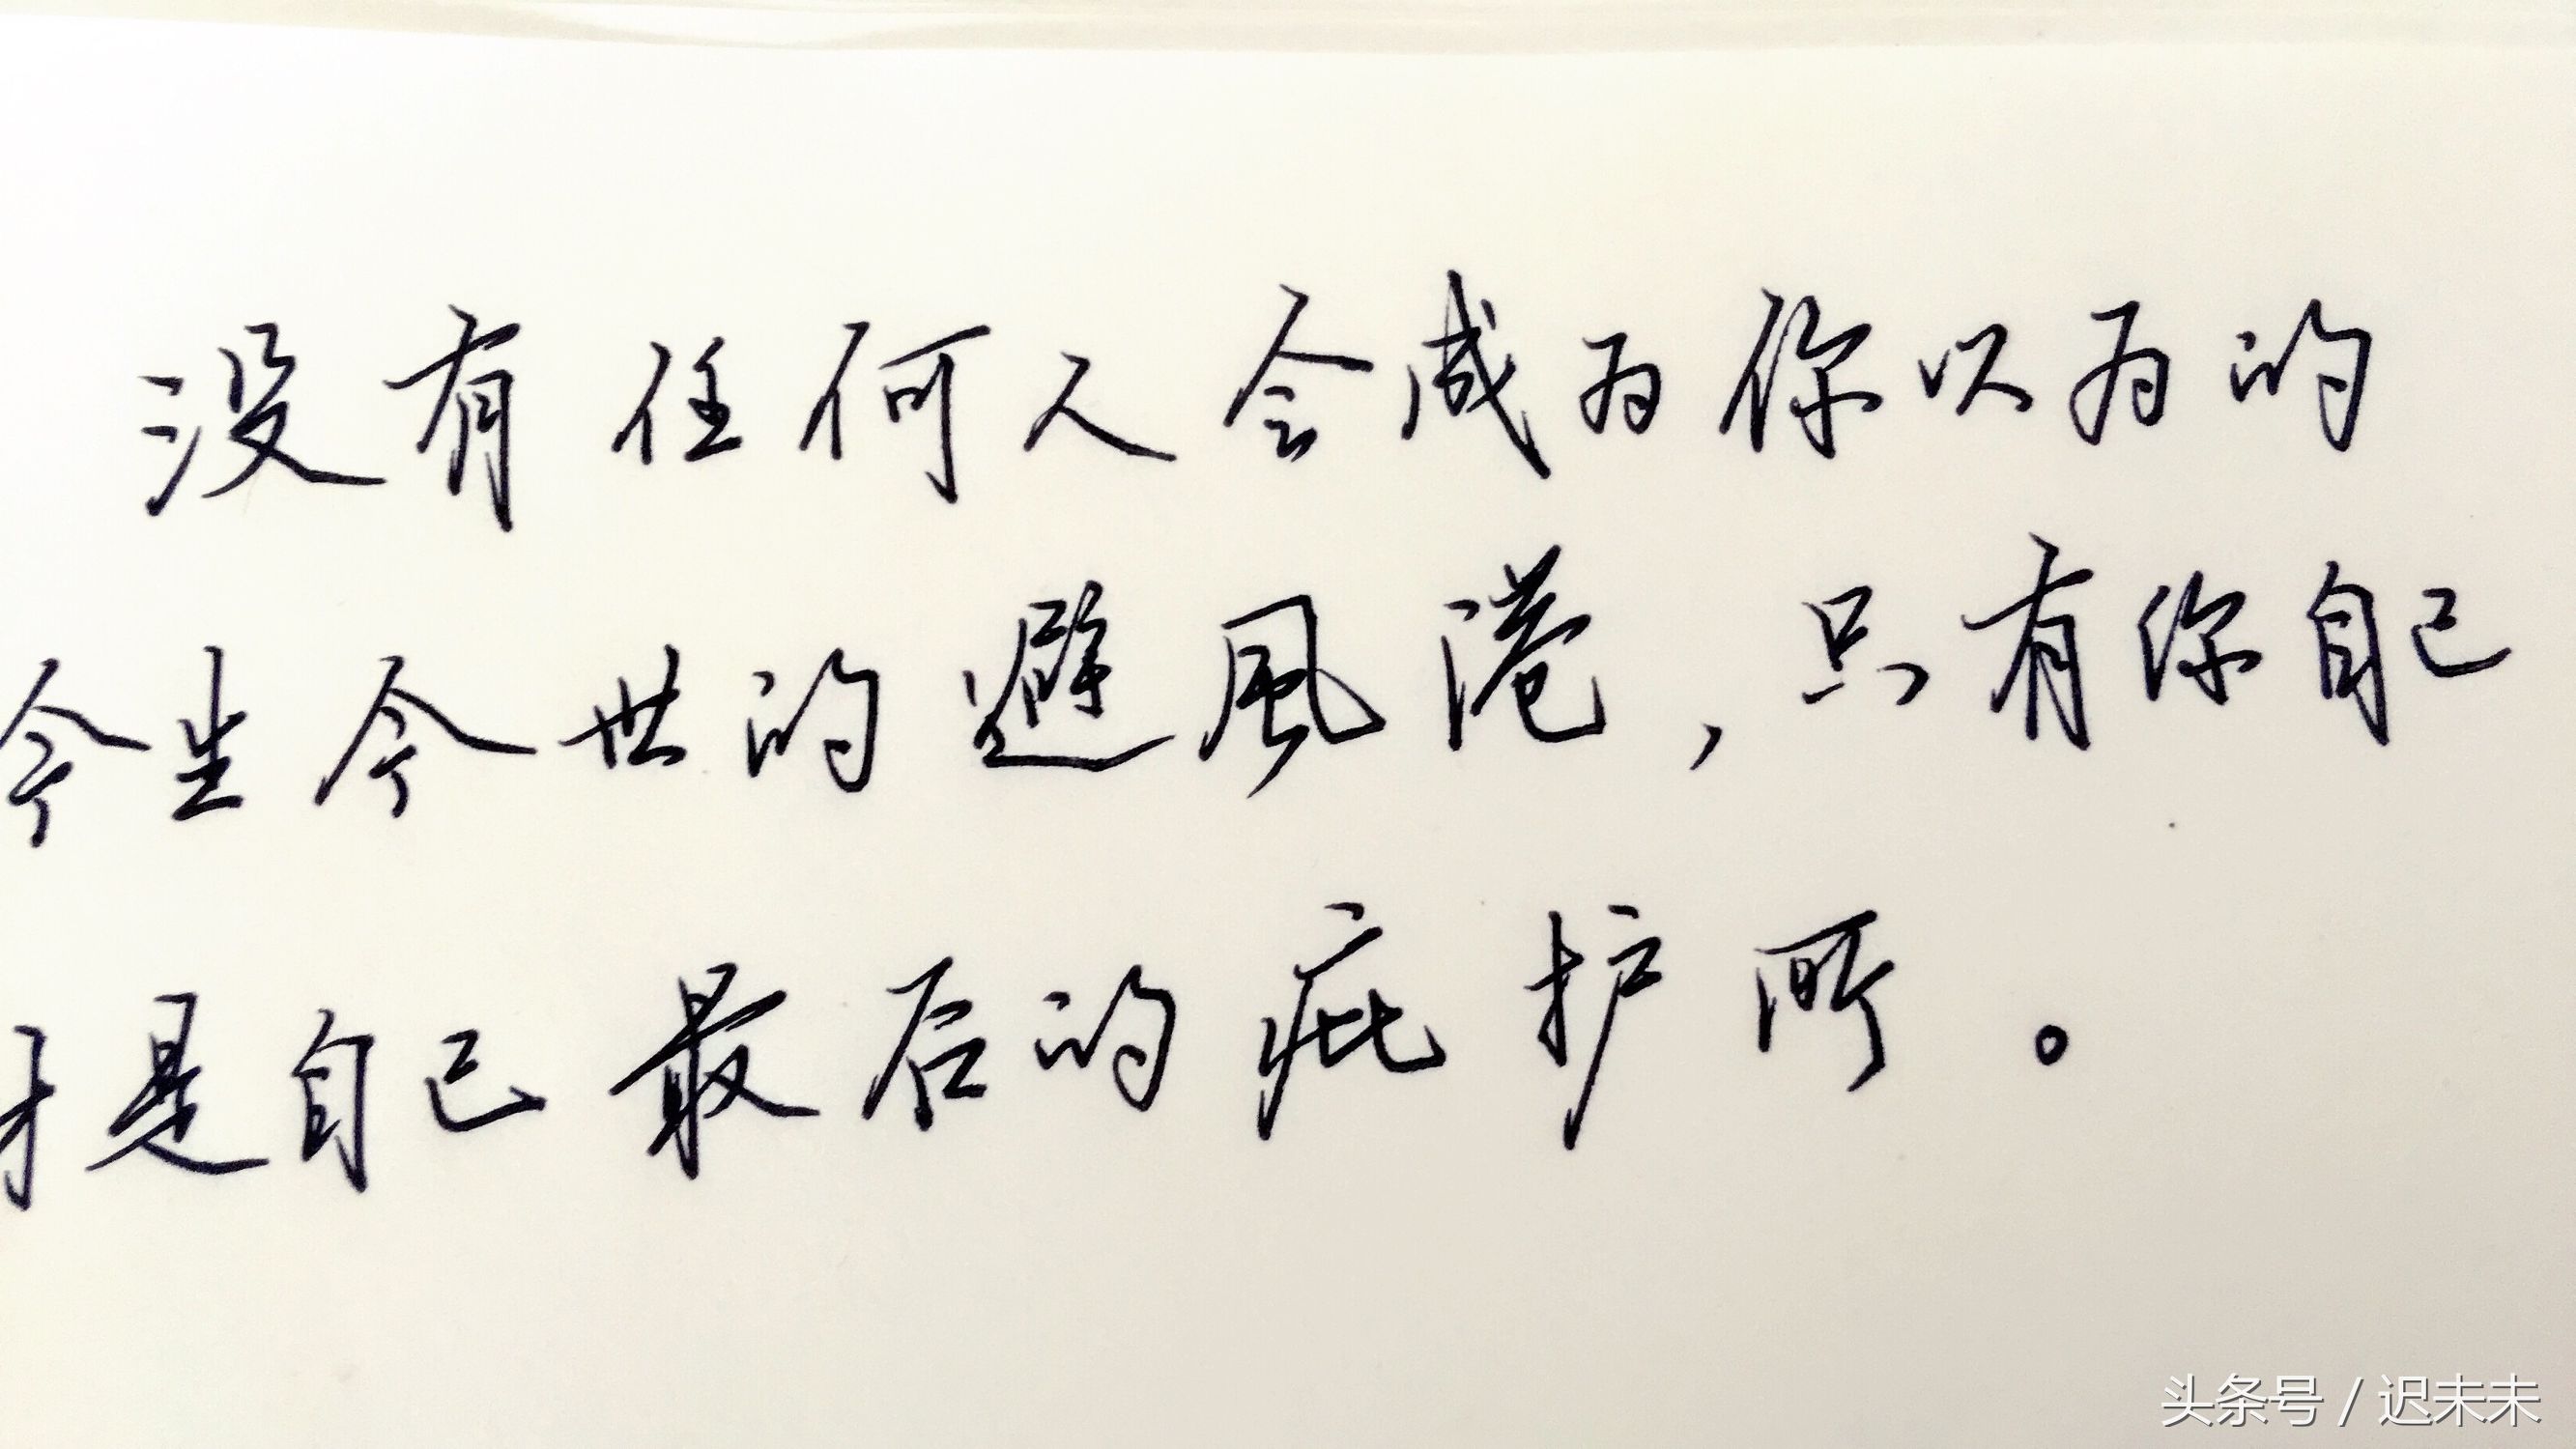 没有任何人会成为你以为的
今生今世的避風港，只有你自己
才是自己最后的疪护所。
头条号 / 迟未未